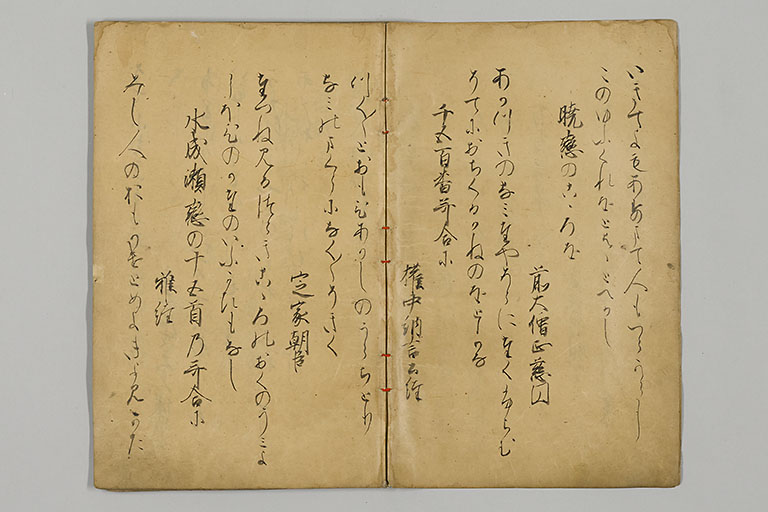 いきてよもあすまて人もつらからし
このゆふくれをとはゝとへかし
暁恋のこゝろを
前大僧正慈円
あかつきのなみたやそらにたくふらむ
そてにおちくるかねのをとかな
千五百番哥合に
権中納言公経
つく〱とおもひあかしのうらちとり
なみのまくらになく〱そきく
定家朝臣
たつねみるつらきこゝろのおくのうみよ
しほひのかたのいふかひもなし
水成瀬恋の十五首乃哥合に
雅経
みし人のおもかけとめよきよみかた